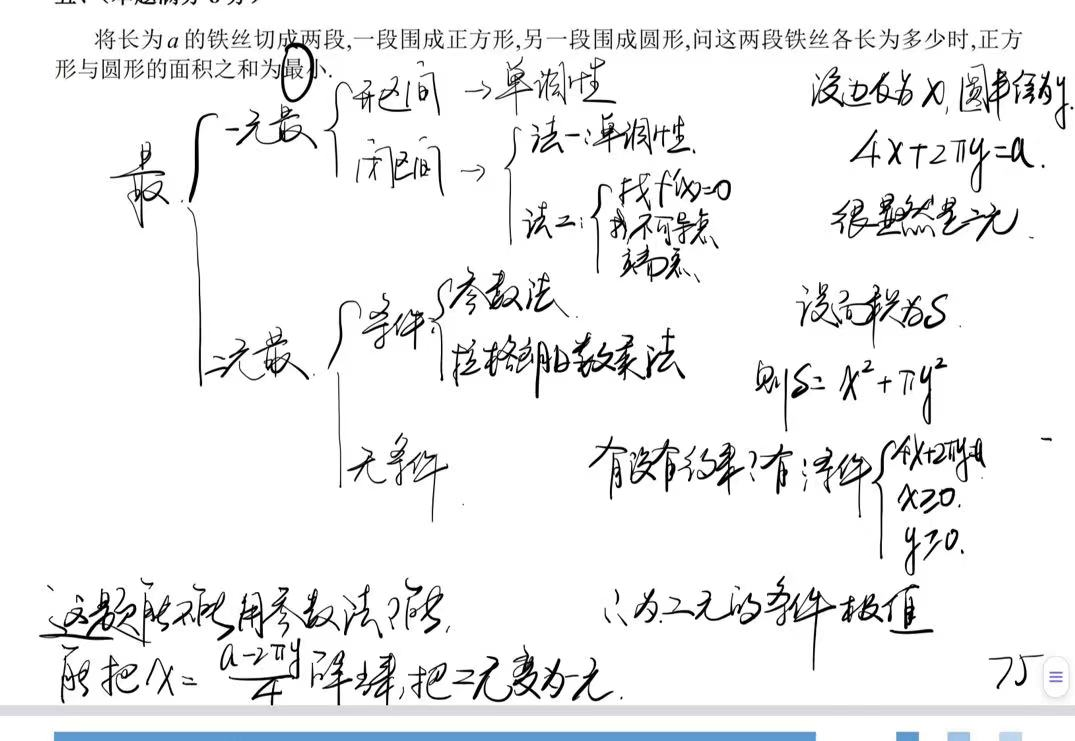 将长为a的铁丝切成两段,一段围成正方形,另一段围成圆形,问这两段铁丝各长为多少时,正方
形与圆形的面积之和为最小.
最
一元最
开区间 → 单调性
闭区间 →
法一:单调性.
法二:
找f'(x)=0
找不可导点
端点
二元最
条件:
参数法
拉格朗日数乘法
无条件
设边长为x,圆半径为y.
4x+2πy=a.
很显然是二元.
设面积为S.
则S=x²+πy²
有没有约束?有:条件
4x+2πy=a
x≥0.
y≥0.
∴为二元的条件极值
这题能不能用参数法?能.
能把x=\frac{a-2πy}{4}降维,把二元变为一元.
75